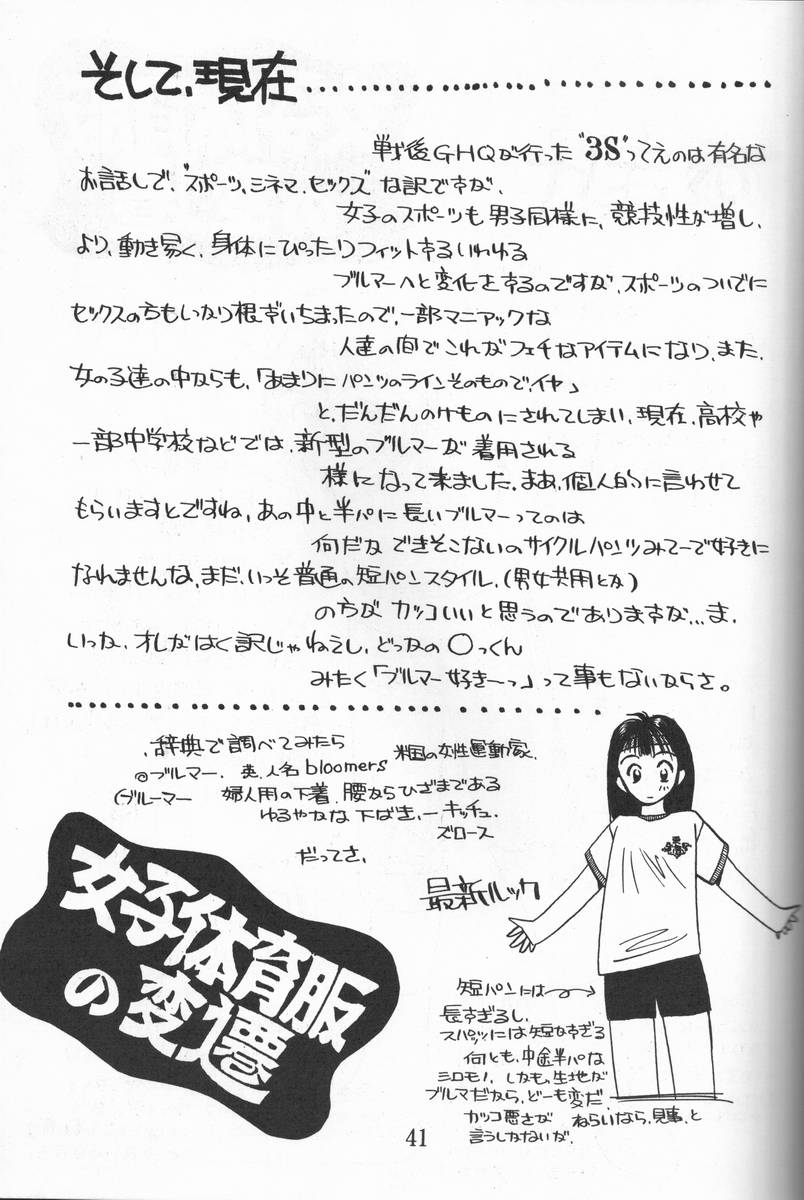 そして、現在………………………………
戦後GHQが行った"3S"ってえのは有名な
お話しで、"スポーツ、シネマ、セックス"な訳ですが、
女子のスポーツも男子同様に、競技性が増し、
より、動き易く、身体にぴったりフィットするいわゆる
ブルマーへと変化をするのですが、スポーツのついでに
セックスの方もしっかり根ずいちまったので、一部マニアックな
人達の間でこれがフェチなアイテムになり、また、
女の子達の中からも、「あまりにパンツのラインそのものでイヤ」
と、だんだんのけものにされてしまい、現在、高校や
一部中学校などでは、新型のブルマーが着用される
様になって来ました。まあ、個人的に言わせて
もらいますとですね、あの中と半パに長いブルマーってのは
何だかできそこないのサイクルパンツみてーで好きに
なれませんな、まだ、いっそ普通の短パンスタイル、(男女共用とか)
の方がカッコいいと思うのでありますが…ま、
いっか、オレがはく訳じゃねえし、どっかの〇っくん
みたく「ブルマー好き〜っ」って事もないからさ。
、辞典で調べてみたら
◎ブルマー、英、人名bloomers 米国の女性運動家、
(ブルーマー 婦人用の下着、腰からひざまである
ゆるやかな下ばき、ーキッチュ、
ズロース
だってさ、
女子体育服
の変遷
最新ルック
短パンには
長すぎるし、
スパッツには短かすぎる
何とも、中途半パな
シロモノ、しかも、生地が
ブルマだから、どーも変だ、
カッコ悪さが ねらいなら、見事、と
言うしかないが、
41